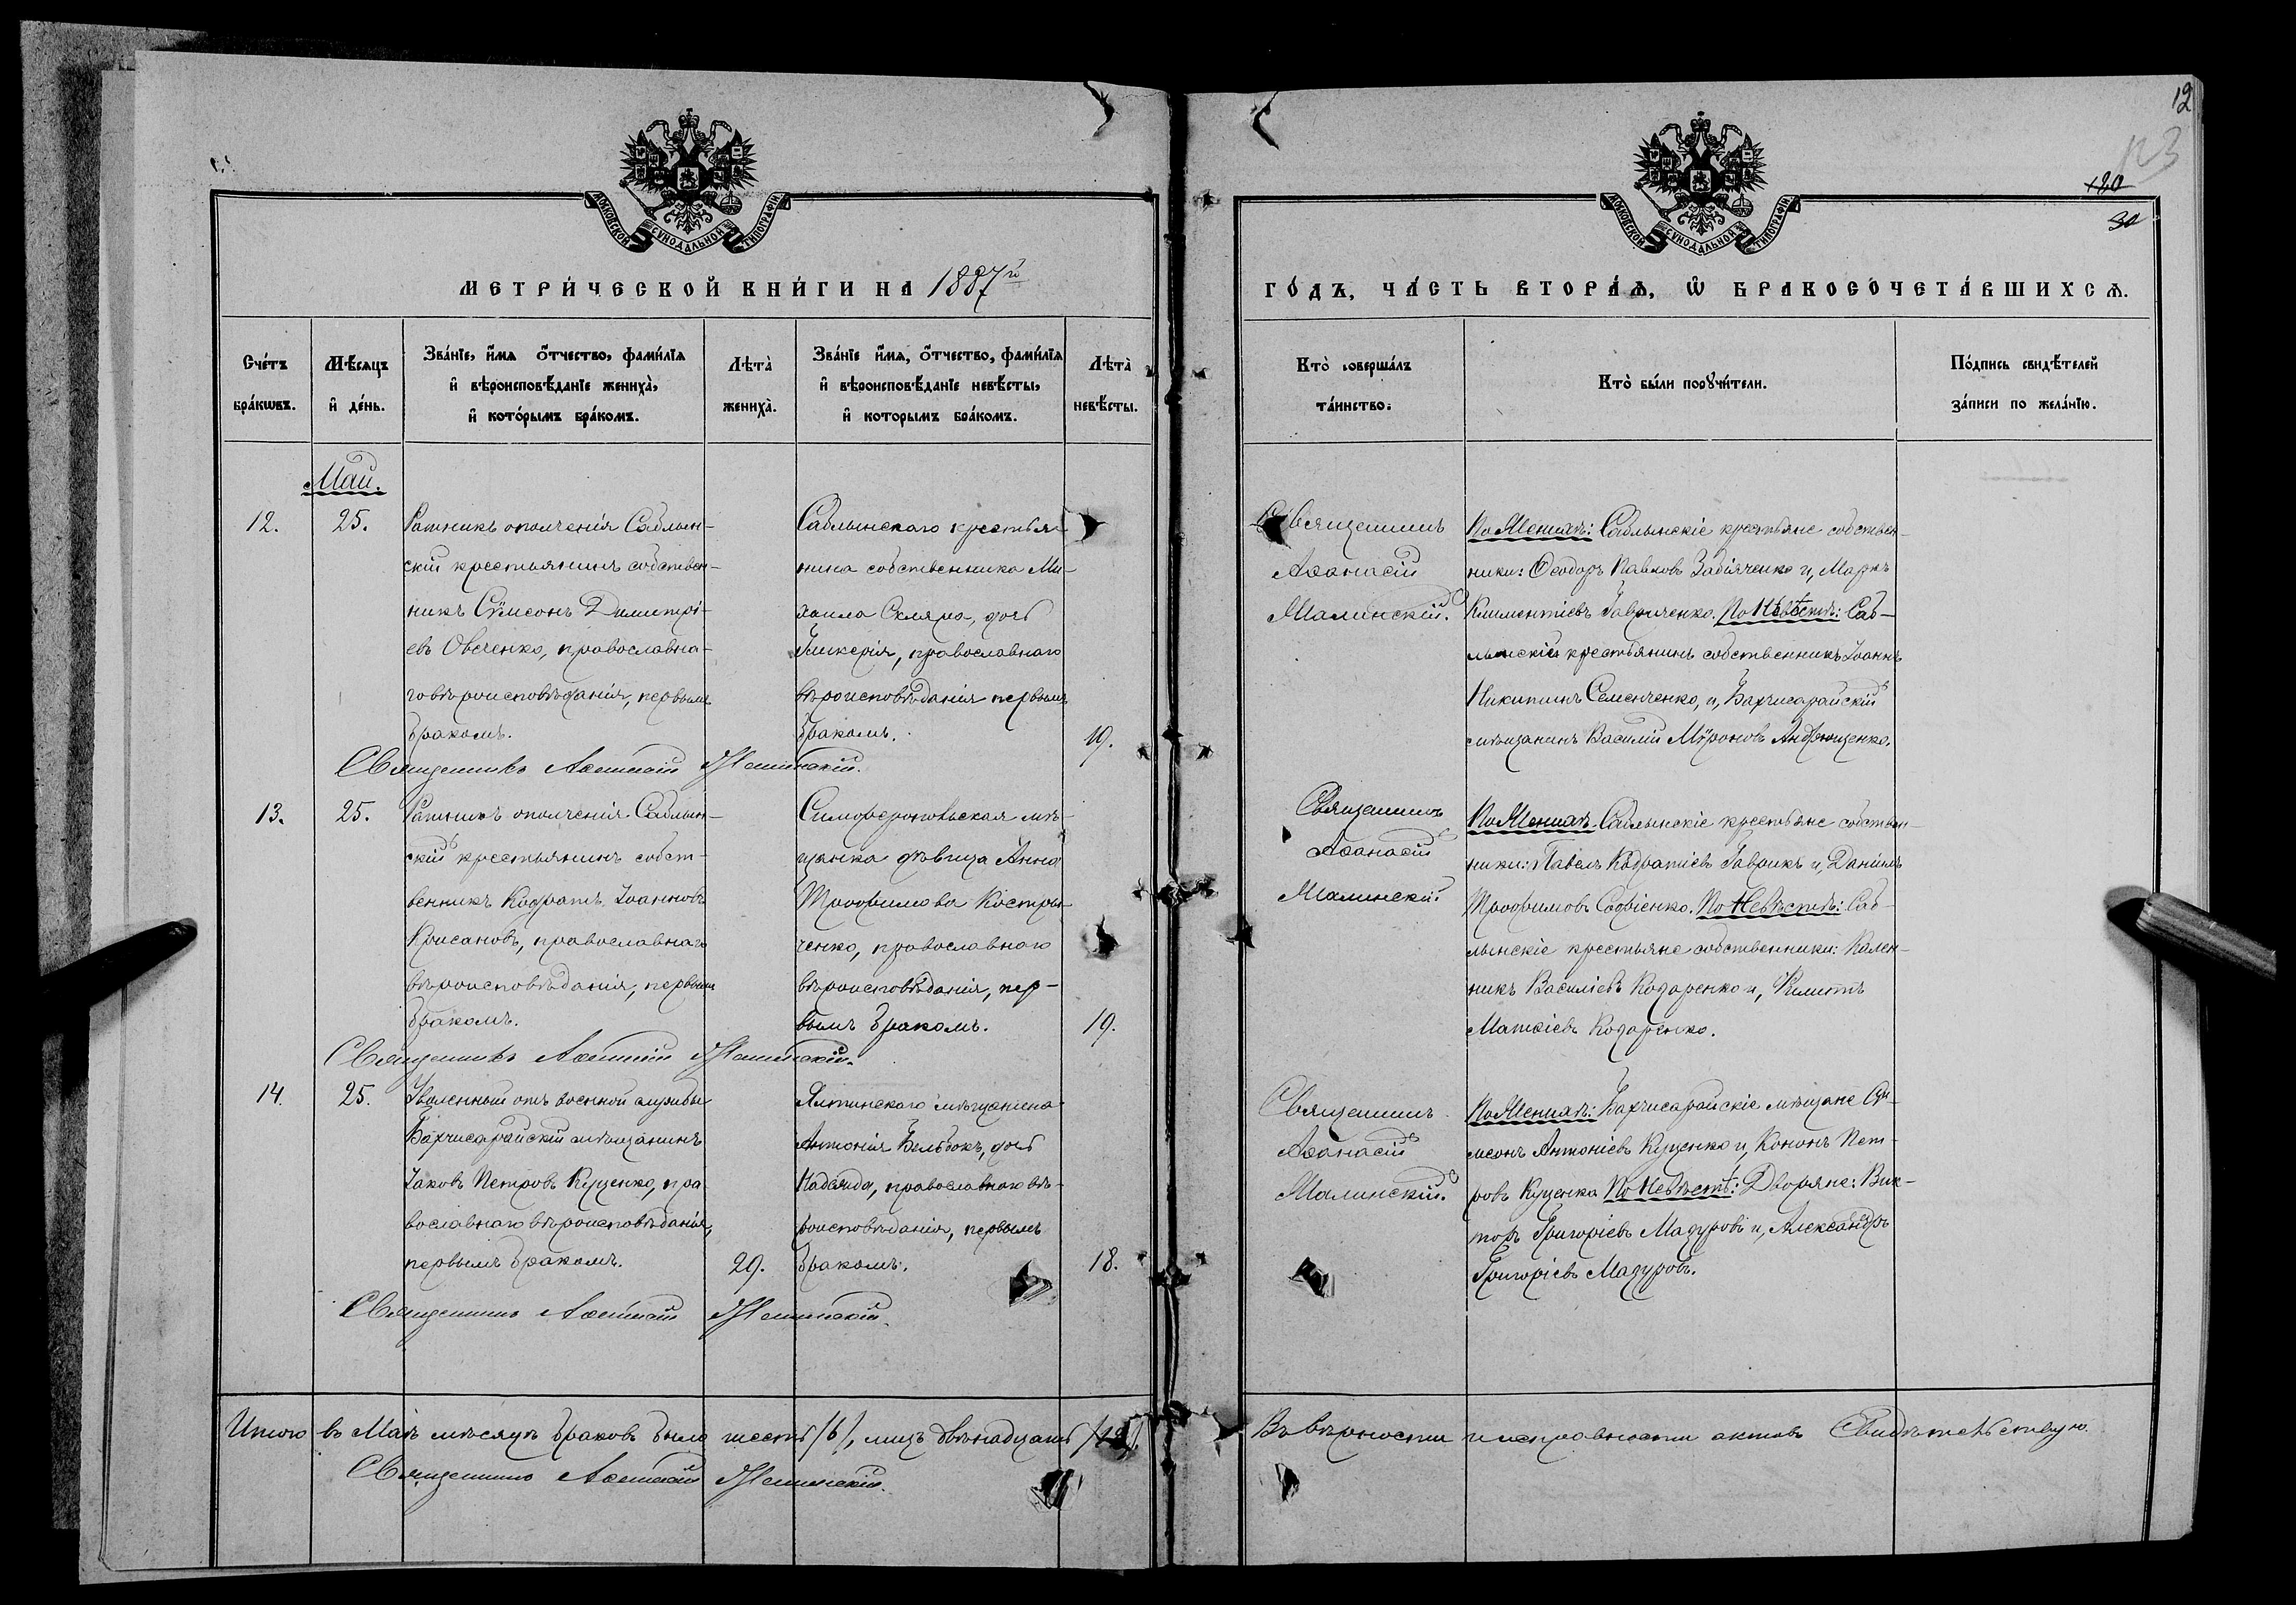 12
123
120
30
МОСКОВСКОЙ СѴНОДАЛЬНОЙ ТИПОГРАФІИ
МОСКОВСКОЙ СѴНОДАЛЬНОЙ ТИПОГРАФІИ
МЕТРИ́ЧЕСКОЙ КНИ́ГИ НА 1887й
ГО́ДЪ, ЧА́СТЬ ВТОРА́Ѧ, Ѡ҆ БРАКОСОЧЕТА́ВШИХСѦ.
Сче́тъ бра́кѡвъ.
Мѣ́сяцъ и҆ де́нь.
Зва́нїе, и҆́мѧ ѻ҆́тчество, фами́лїѧ
и҆ вѣроисповѣ́данїе жениха̀,
и҆ кото́рымъ бра́комъ.
Лѣта̀ жениха̀.
Зва́нїе и҆́мѧ, ѻ҆́тчество, фами́лїѧ
и҆ вѣроисповѣ́данїе невѣ́сты,
и҆ которымъ бра́комъ.
Лѣта̀ невѣ́сты.
Кто̀ соверша́лъ та́инство.
Кто̀ бы́ли порꙋчи́тели.
По́дпись свидѣ́телей
за́писи по жела́нїю.
Май.
12.
25.
Ратникъ ополченія Саблын-
скій крестьянинъ собствен-
никъ Сѵмеонъ Димитрі-
евъ Овченко, православна-
го вѣроисповѣданія, первымъ
бракомъ.
Саблынскаго крестья-
нина собственника Ми-
хаила Скляра, дочь
Гликерія, православнаго
вѣроисповѣданія первымъ
бракомъ.
19.
Священникъ
Аѳанасій
Малинскій.
По Женихѣ: Саблынскіе крестьяне собствен-
ники: Ѳеодоръ Павловъ Забіяченко и, Маркъ
Климентіевъ Гавриченко. По Невѣстѣ: Саб-
лынскій крестьянинъ собственникъ Іоаннъ
Никитинъ Семенченко, и, Бахчисарайскій
мѣщанинъ Василій Мѵроновъ Андрющенко.
Священникъ Аѳанасій Малинскій.
13.
25.
Ратникъ ополченія Саблын-
скій крестьянинъ собст-
венникъ Кодратъ Іоанновъ
Крисановъ, православнаго
вѣроисповѣданія, первымъ
бракомъ.
Симферопольская мѣ-
щанка дѣвица Анна
Трофимова Костры-
ченко, православнаго
вѣроисповѣданія, пер-
вымъ бракомъ.
19.
Священникъ
Аѳанасій
Малинскій
По Женихѣ. Саблынскіе крестьяне собствен-
ники: Павелъ Кодратіевъ Гаврикъ и, Даніилъ
Трофимовъ Савіенко. По Невѣстѣ: Саб-
лынскіе крестьяне собственники: Кален-
никъ Василіевъ Кодаренко и, Филиппъ
Матѳіевъ Кодаренко.
Священникъ Аѳанасій Малинскій.
14.
25.
Уволенный отъ военной службы
Бахчисарайскій мѣщанинъ
Іаковъ Петровъ Куценко, пра
вославнаго вѣроисповѣданія,
первымъ бракомъ.
29.
Ялтинскаго мѣщанина
Антонія Бильбокъ, дочь
Надежда, православнаго вѣ-
роисповѣданія, первымъ
бракомъ.
18.
Священникъ
Аѳанасій
Малинскій.
По Женихѣ: Бахчисарайскіе мѣщане Сѵ-
меонъ Антоніевъ Куценко и, Кононъ Пет-
ровъ Куценко По Невѣстѣ: Дворяне: Вик-
торъ Григоріевъ Мазуровъ и, Александръ
Григоріевъ Мазуровъ.
Священникъ Аѳанасій Малинскій.
Итого въ Маѣ мѣсяцѣ браковъ было шесть /6/, лицъ двѣнадцать /12/.
Священникъ Аѳанасій Малинскій.
Въ вѣрности и исправности актовъ Свидѣтельствую.